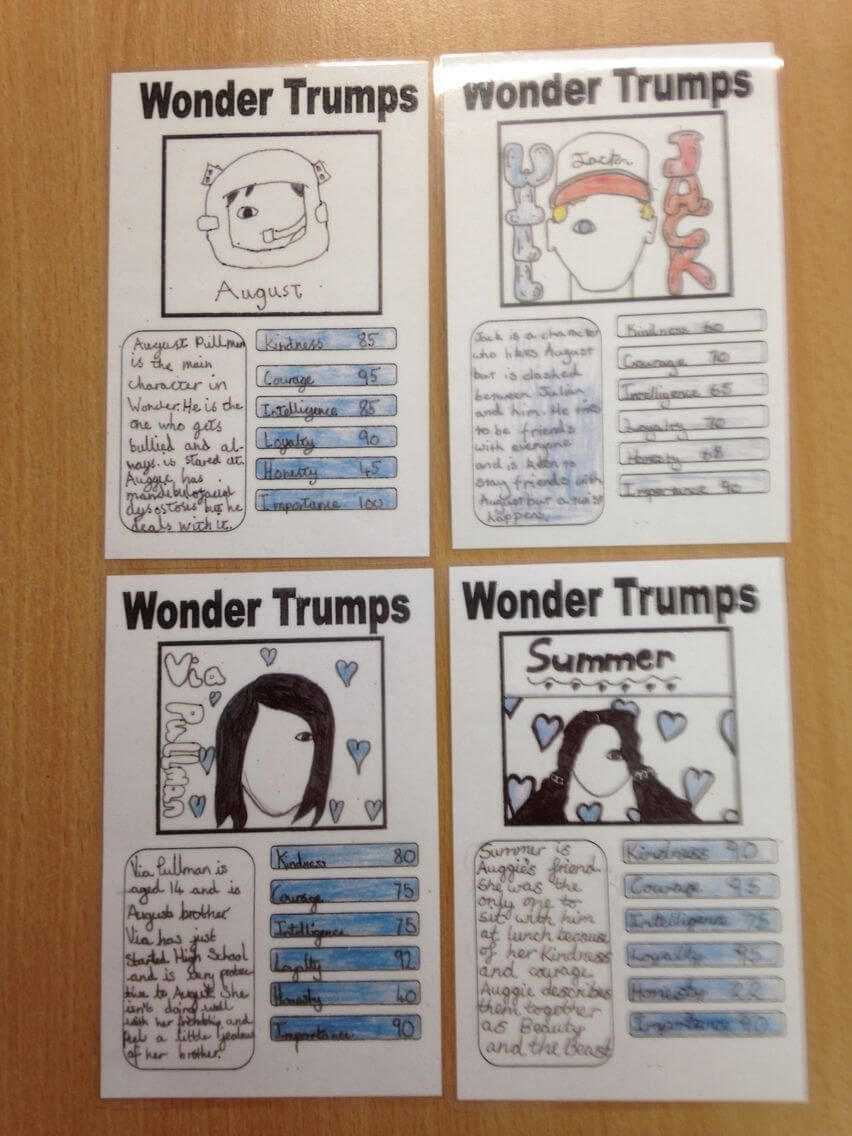 Wonder Trumps
August
August Pullman
is the main
character in
Wonder. He is the
one who gets
bullied and al-
ways is stared at.
Auggie has
mandibulofacial
dysostosis but he
deals with it.
Kindness 85
Courage 95
Intelligence 85
Loyalty 90
Honesty 45
Importance 100
Wonder Trumps
WILL
Jack
JACK
Jack is a character
who likes August
but is clashed
between Julian
and him. He
to be friends
with everyone
and is keen to
stay friends with
August but a twist
happens.
Kindness 60
Courage 70
Intelligence 65
Loyalty 70
Honesty 68
Importance 90
Wonder Trumps
Via
Pullman
Via Pullman is
aged 14 and is
August brother
Via has just
Started High School
and is very protec
tive to August. She
isn't doing well
with her friendship and
feel a little jealous
of her brother.
Kindness 80
Courage 75
Intelligence 75
Loyalty 92
Honesty 40
Importance 90
Wonder Trumps
Summer
Summer is
Auggie's friend.
She was the
only one to
sit with him
at lunch because
of her Kindness
and courage
Auggie describes
them together
as Beauty
and the Beast
Kindness 90
Courage 95
Intelligence 75
Loyalty 95
Honesty 22
Importance 90